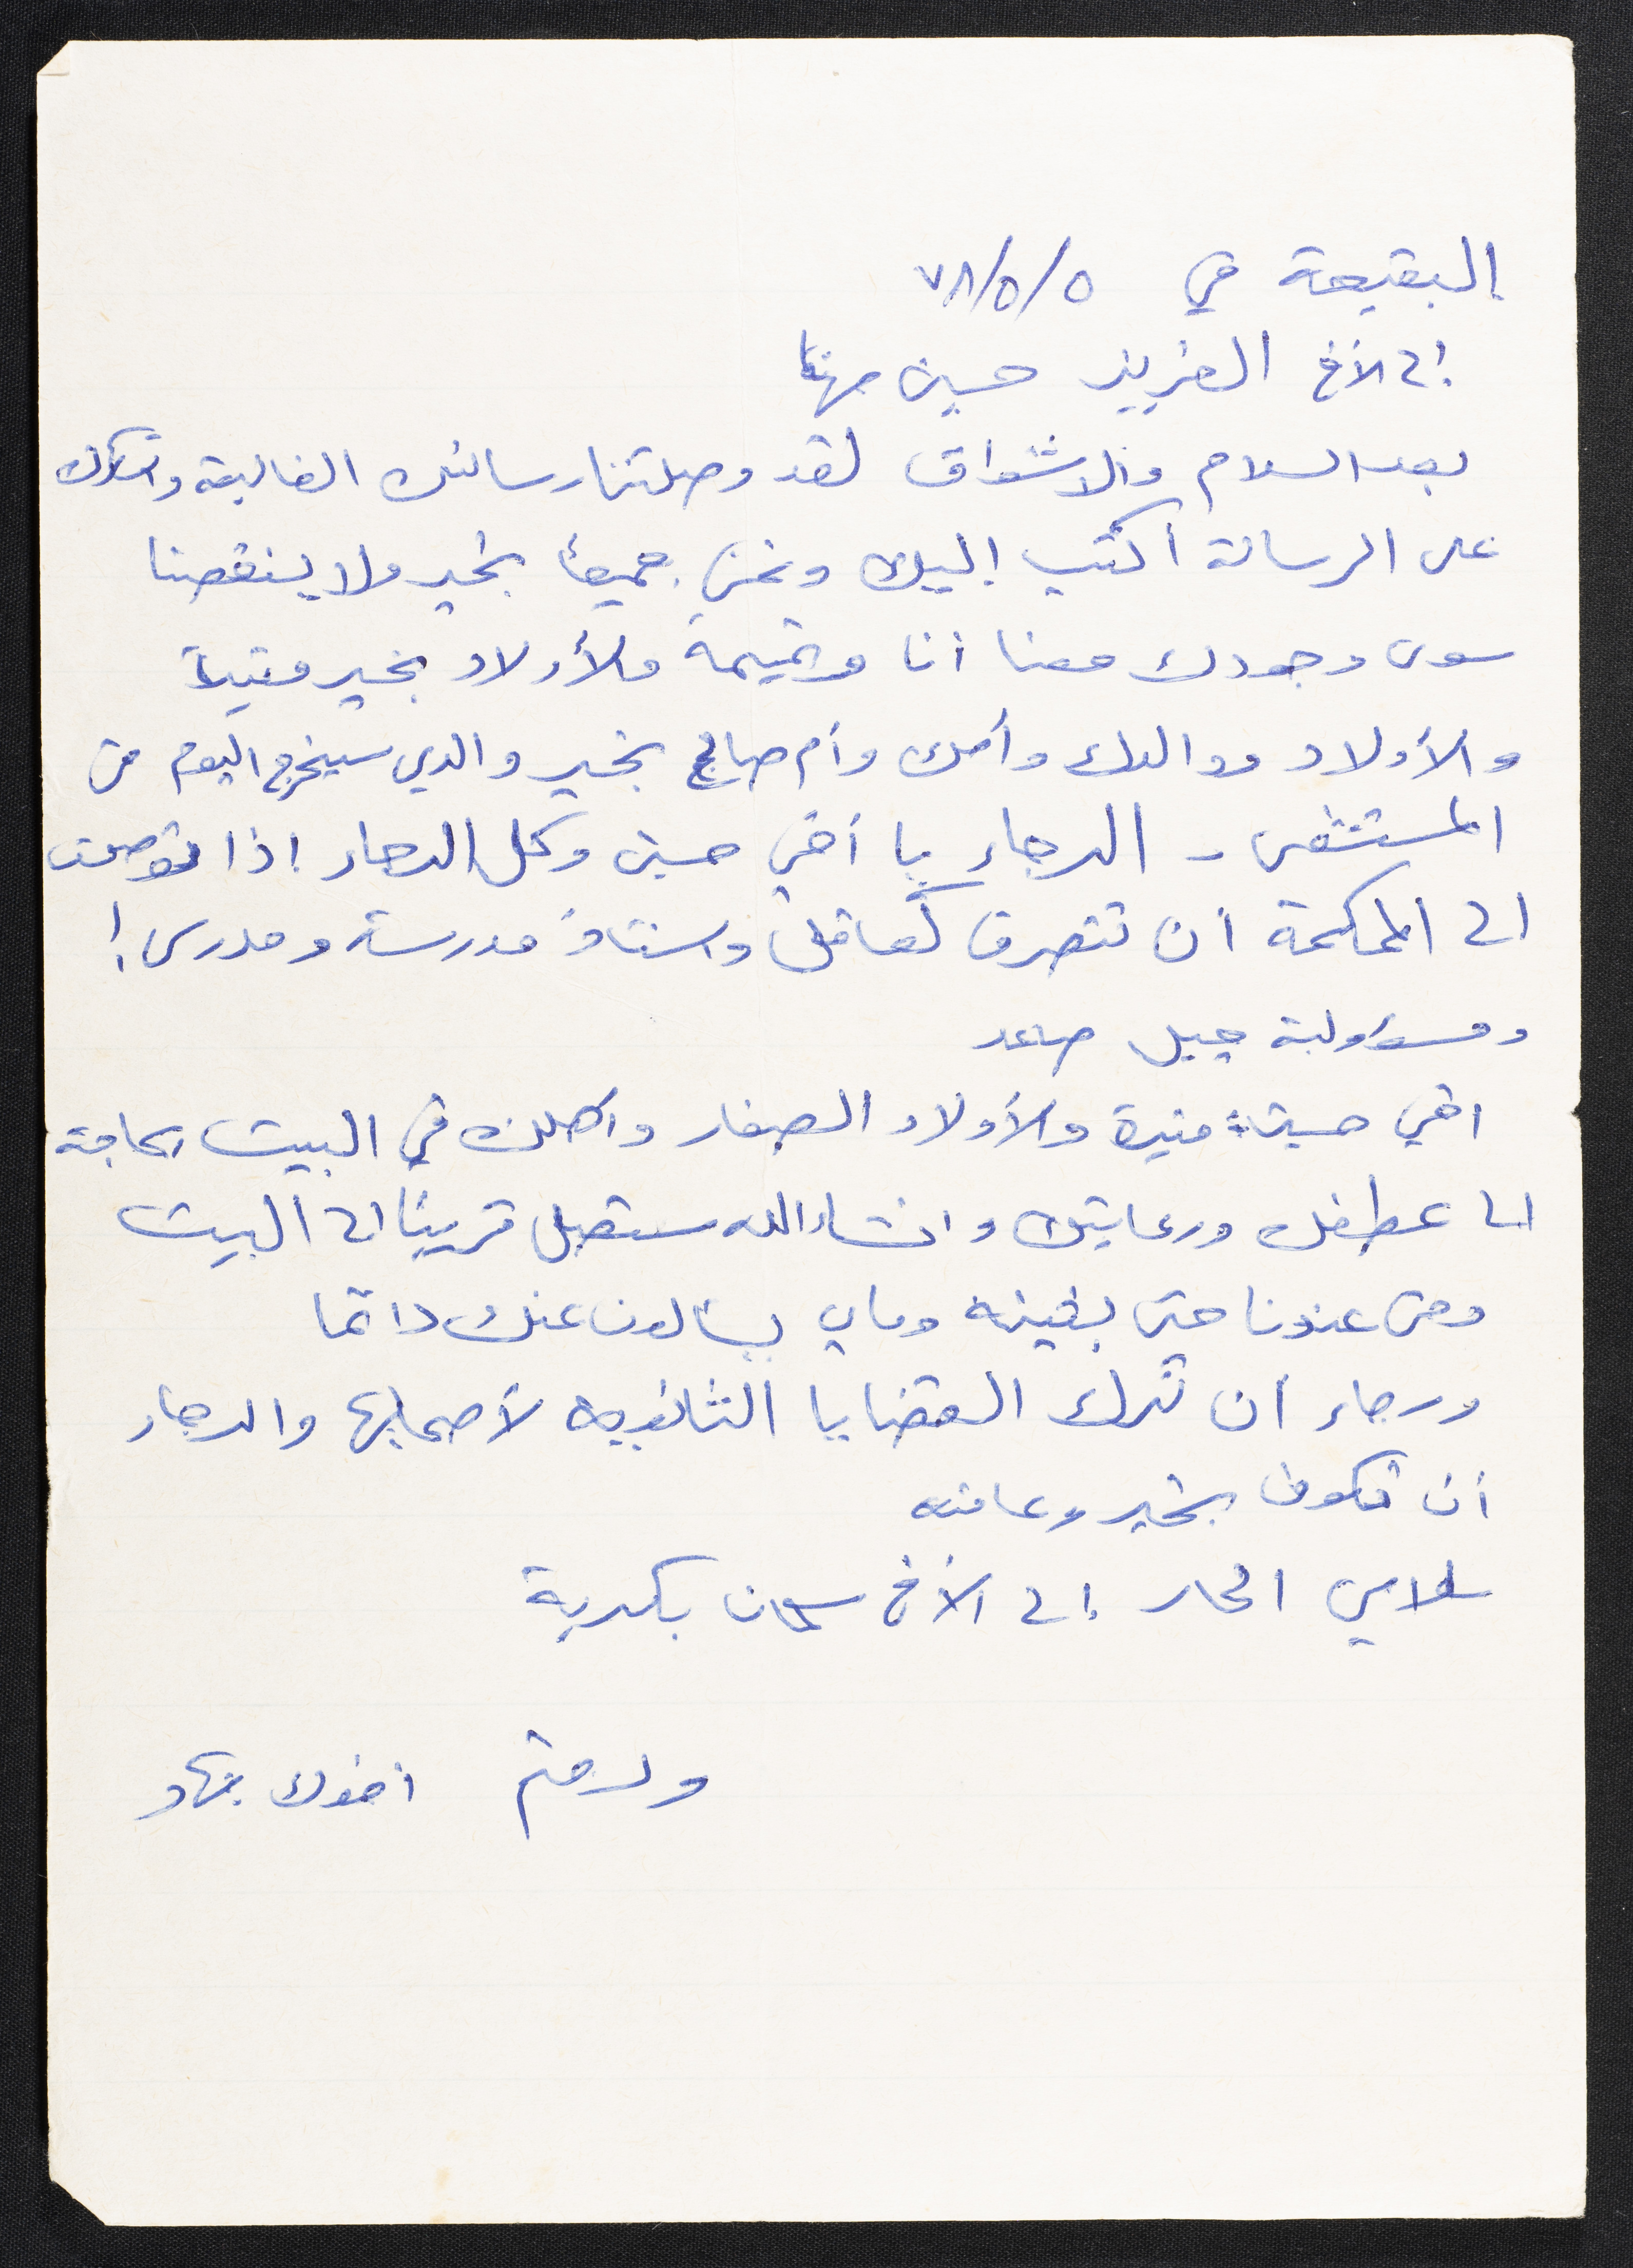 البقيعة في ٧٨/٥/٥
إلى الأخ العزيز حسين مهنا
بعد السلام والاشواق لقد وصلتنا رسائلك الغالية واشكرك
على الرسالة أكتب إليك ونحن جميعاً بخير ولا ينقصنا
سوى وجودك معنا أنا وتميمة والأولاد بخير منيرة
والأولاد ووالدك وأمك وأم صالح بخير والدي سيخرج اليوم من
المستشفى - الرجاء يا أخي حسين وكل الرجاء إذا توصلت
الى المحكمة أن تتصرف كعاقل واستاذ مدرسة ومدرس!
ومسؤولية جيل صاعد
اخي حسين: منيرة والأولاد الصغار وأهلك في البيت بحاجة
الى عطفك ورعايتك وانشاء الله ستصل قريبا الى البيت
ومن عندنا حتى بثينه ومان يسألون عنك دائما
ورجاء أن تترك القضايا الثانويه لأصحابها والرجاء
أن تكون بخير وعافيه
سلامي الحار إلى الأخ سلمان بكرية
ودمتم اخوك جهاد